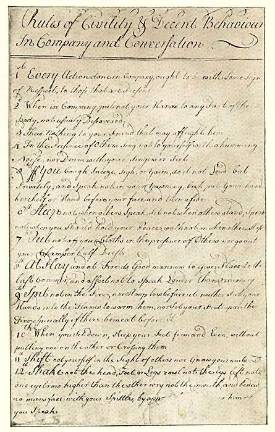 Rules of Civility & Decent Behaviour
In Company and Conversation
1st Every Action done in Company, ought to be with Some Sign
of Respect, to those that are Present.
2 When in Company, put not your Hands to any Part of the
Body, not usualy Discovered.
3 Shew Nothing to your Freind that may affright him.
4 In the Presence of Others Sing not to yourself with a humming
Noise, nor Drum with your Fingers or Feet.
5 If You Cough, Sneeze, Sigh, or Yawn, do it not Loud but
Privately; and Speak not in your Yawning, but put Your hand
kercheif or Hand before your face and turn aside.
6th Sleep not when others Speak, Sit not when others stand, Speak
not when you Should hold your Peace, walk not on when others Stop
7th Put not off your Cloths in the presence of Others, nor go out
your Chamber half Drest
8th At Play and at Fire its Good manners to Give Place to the
last Commer, and affect not to Speak Louder than Ordinary
9th Spit not in the Fire, nor Stoop low before it neither Put your
Hands into the Flames to warm them, nor Set your Feet upon the
Fire especially if there be meat before it
10th When you Sit down, Keep your Feet firm and Even, without
putting one on the other or Crossing them
11th Shift not yourself in the Sight of others nor Gnaw your nails
12th Shake not the head, Feet, or Legs rowl not the Eys lift not
one eyebrow higher than the other wry not the mouth, and bedew
no mans face with your Spittle, by
you Speak